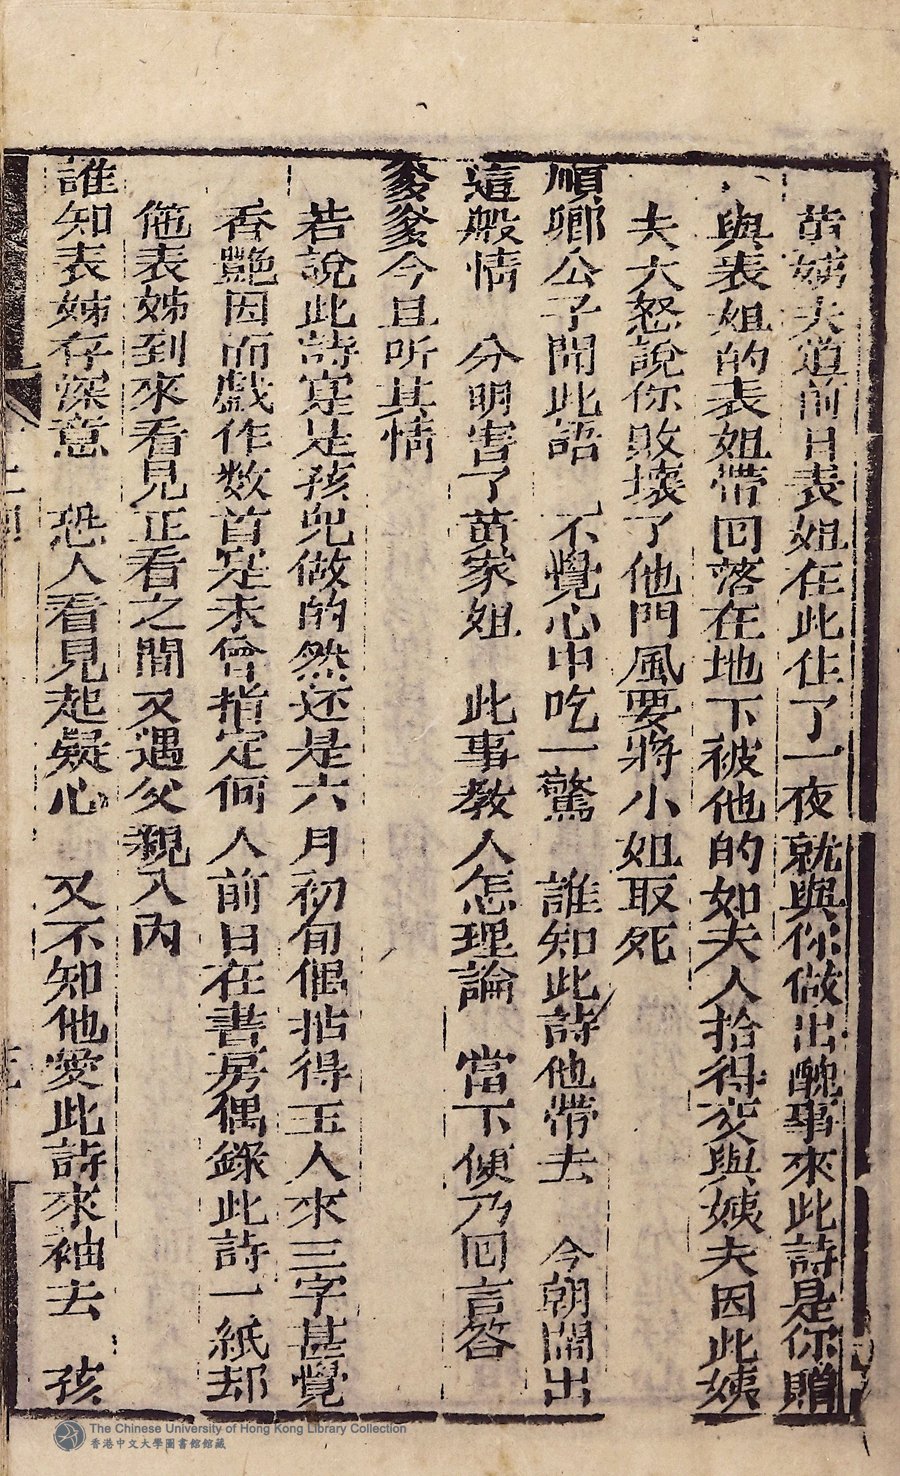 黃姨夫道前日表姐在此住了一夜就與你做出醜事來此詩是你贈
與表姐的表姐帶囘落在地下被他的如夫人拾得交與姨夫因此姨
夫大怒說你敗壞了他門風要將小姐取死
順卿公子聞此語　不覺心中吃一驚　誰知此詩他帶去　今朝鬧出
這般情　分明害了黃家姐　此事教人怎理論　當下便乃囘言答
爹爹今且听其情
若說此詩寔是孩兒做的然还是六月初旬偶拈得玉人來三字甚覺
香艷因而戲作数首寔未曾指定何人前日在書房偶錄此詩一紙却
值表姊到來看見正看之間又遇父親入內
誰知表姊存深意　恐人看見起疑心　又不知他愛此詩來袖去　孩
The Chinese University of Hong Kong Library Collection
香港中文大學圖書館館藏